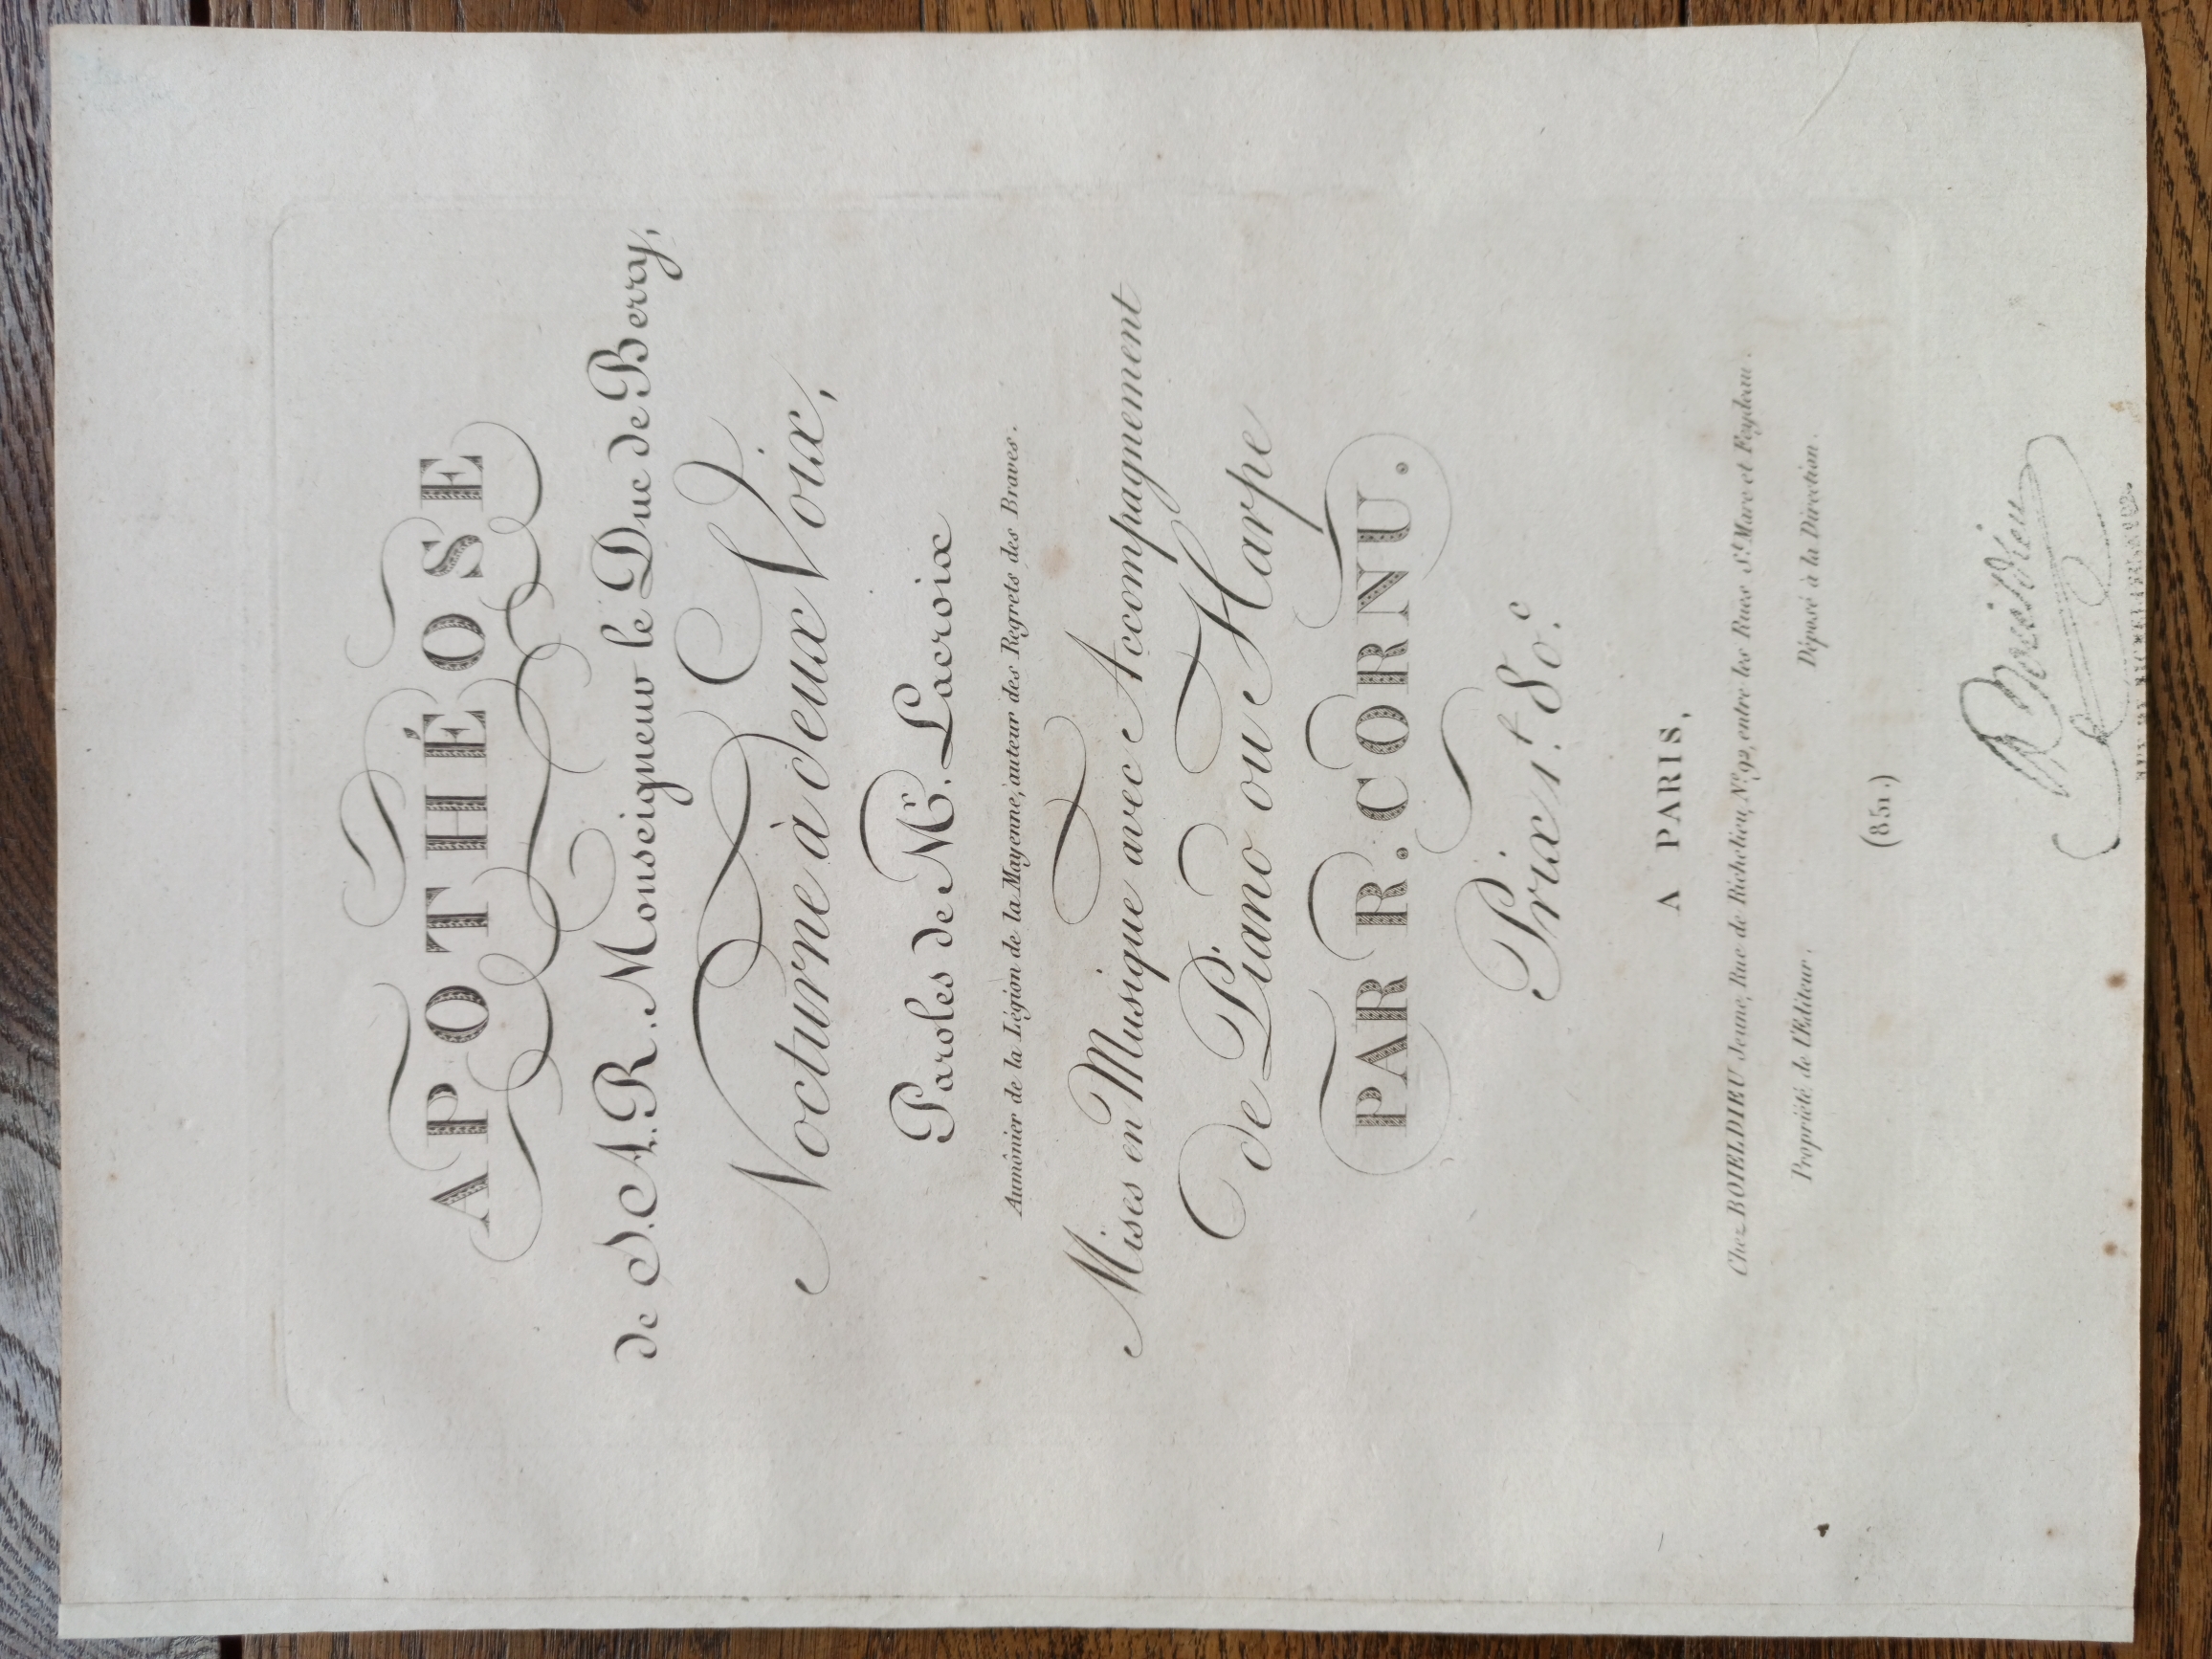 APOTHÉOSE
de S.A.R. Monseigneur le Duc de Berry,
Nocturne à deux Voix,
Paroles de Mr. Lacroix
Aumônier de la Légion de la Mayenne, auteur des Regrets des Braves.
Mises en Musique avec Accompagnement
de Piano ou Harpe
PAR R. CORNU.
Prix 1f. 80.c
A PARIS,
Chez BOIELDIEU Jeune, Rue de Richelieu, No. 92, entre les Rues St. Marc et Feydeau.
Propriété de l'Editeur. Déposé à la Direction.
(851.)
Boieldieu